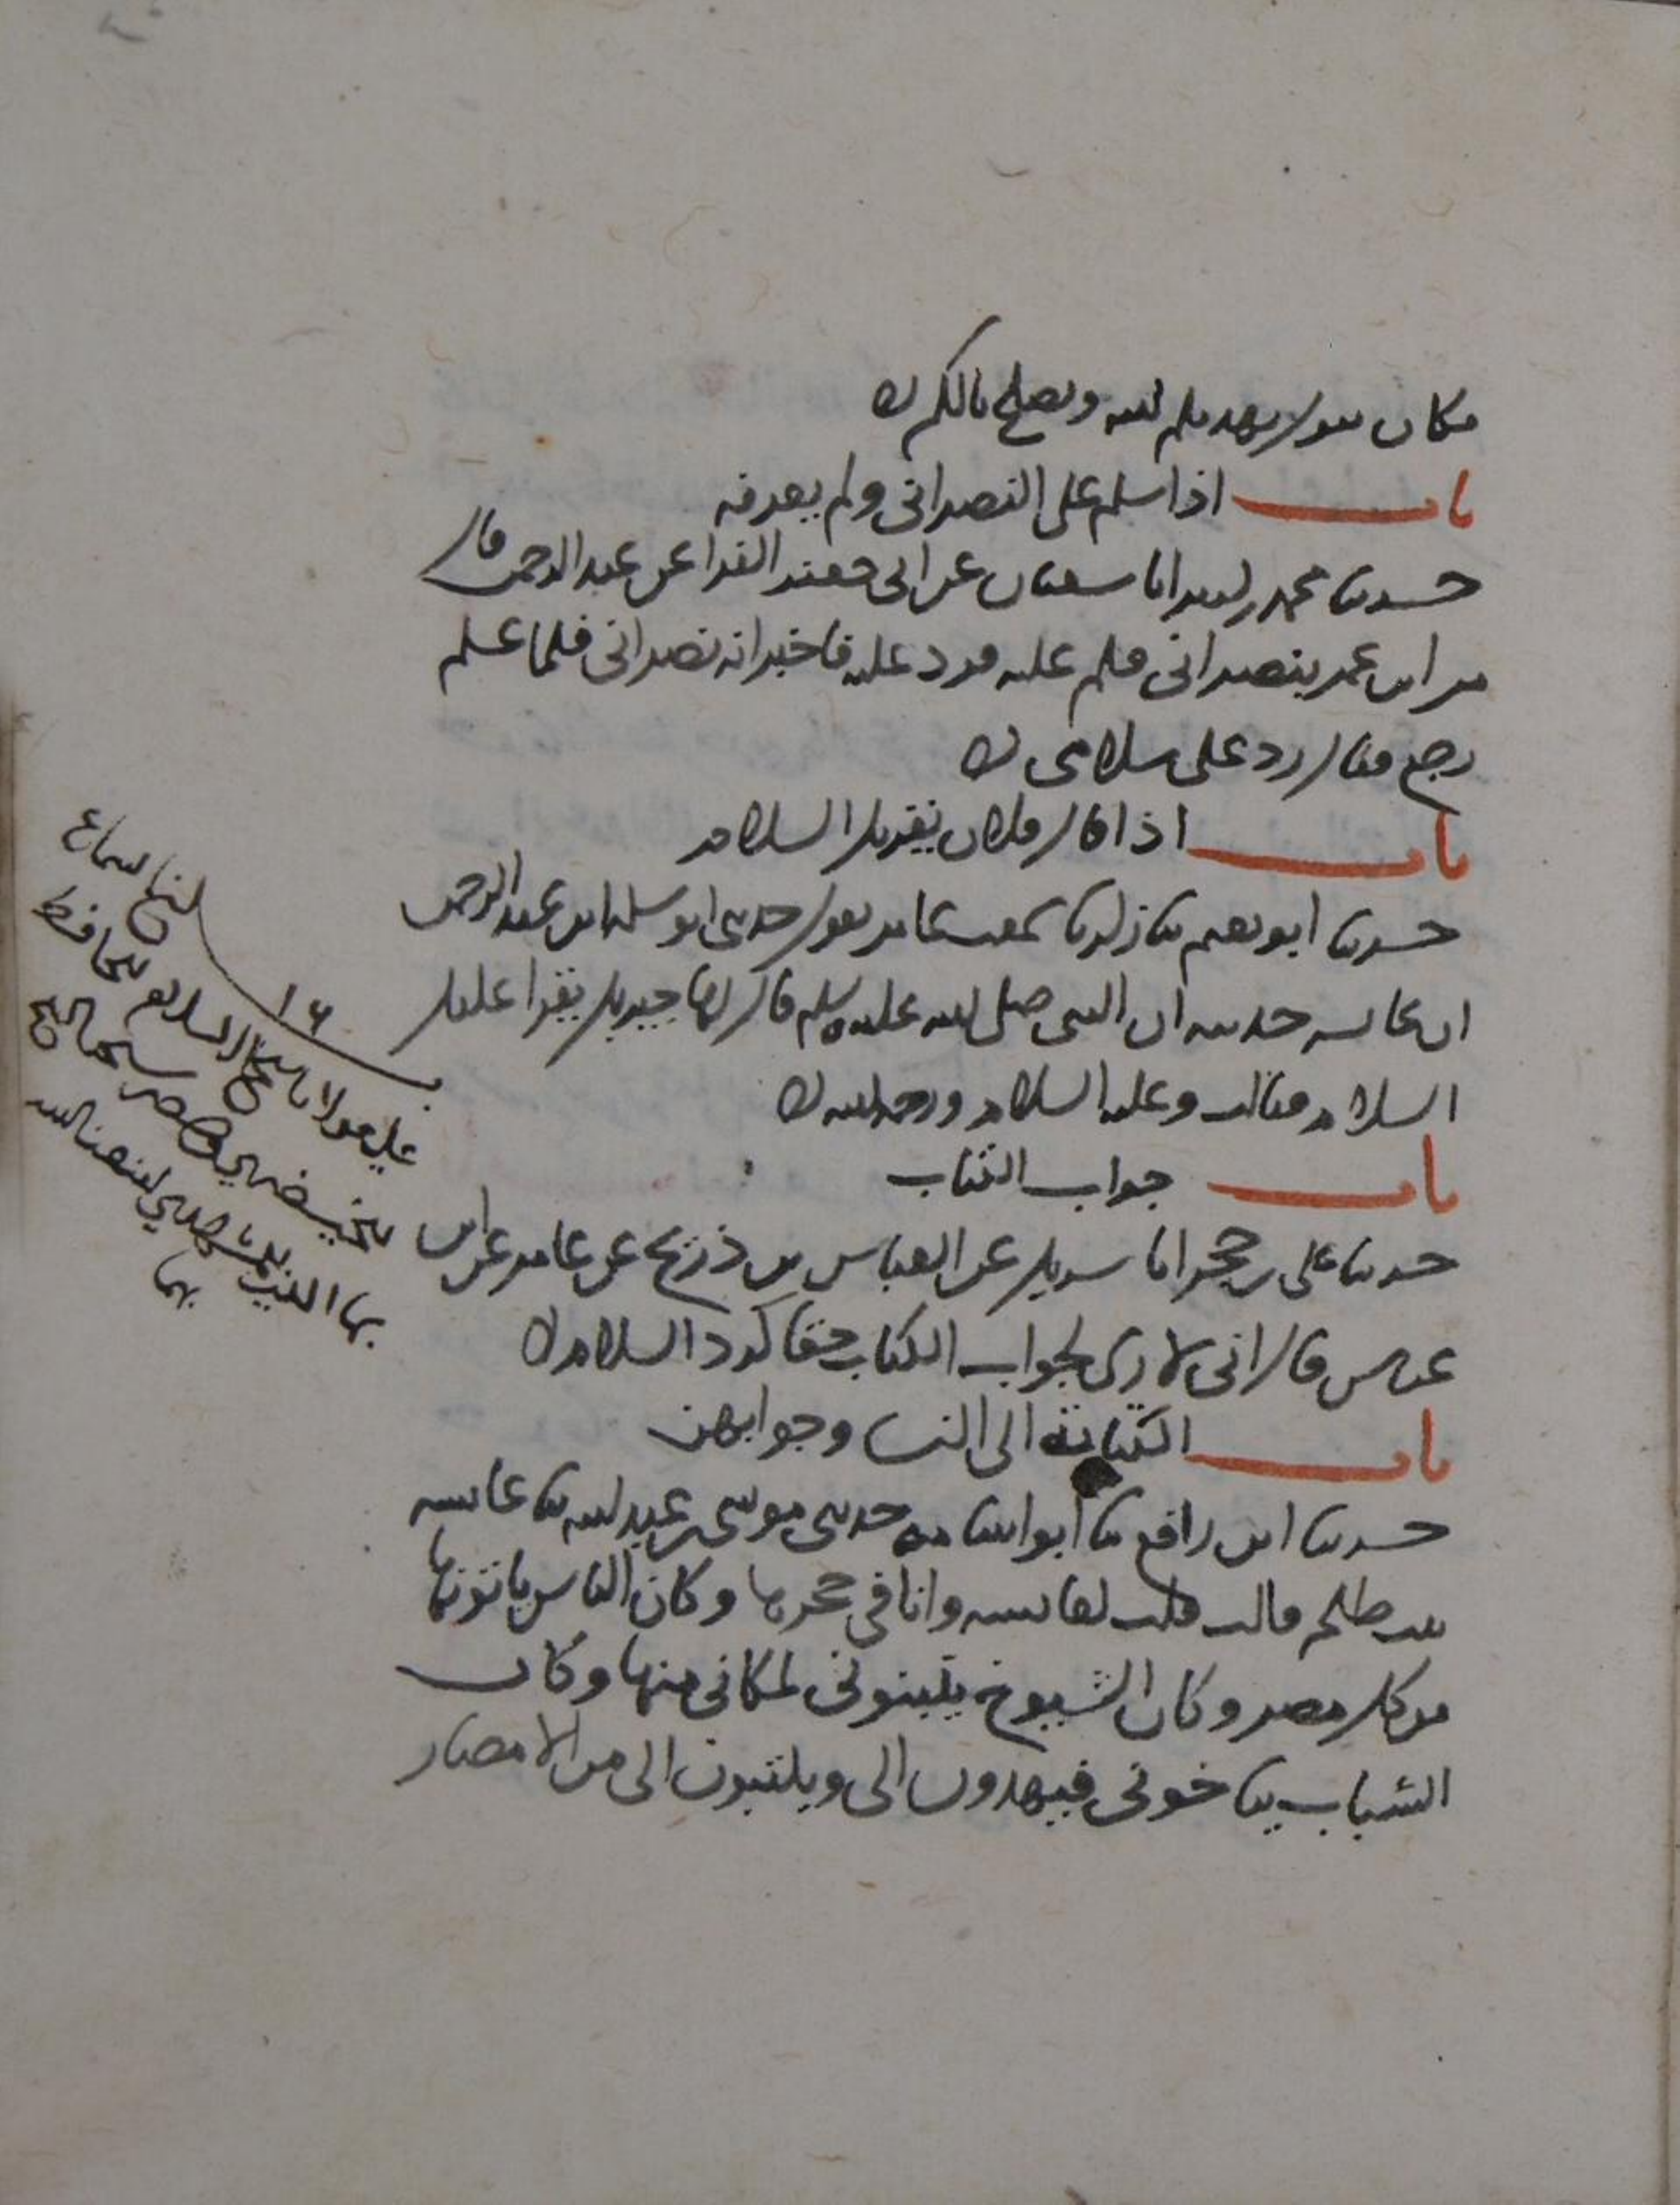 فكان يقول يهديكم الله ويصلح بالكم
باب اذا سلم على النصراني ولم يعرفه
حدثنا محمد بن انا سفيان عن ابي جعفر الفرا عن عبد الرحمن قال
مر ابن عمر بنصراني فسلم عليه فرد عليه فاخبر انه نصراني فلما علم
رجع فقال رد على سلامي
باب اذا قال فلان يقريك السلام
حدثنا ابو نعيم ثنا زكريا سمعت عامر يقول حدثني ابو سلمه ابن عبد الرحمن
ان عائشه حدثته ان النبي صلى الله عليه وسلم قال لها جبريل يقرا عليك
السلام فقالت وعليه السلام ورحمه الله
باب جواب الكتاب
حدثنا على بن حجر انا شريك عن العباس بن ذريح عن عامر عن ابن
عباس قال انى لارى لجواب الكتاب حقا كرد السلام
باب الكتابة الى النسا وجوابهن
حدثنا ابن رافع ثنا ابو اسامه حدثني موسى بن عبد الله ثنا عائشه
بنت طلحه قالت قلت لعائشه وانا في حجرها وكان الناس ياتونها
من كل مصر وكان الشيوخ ينتابوني لمكاني منها وكان
الشباب يتاخوني فيهدون الى ويكتبون الى من الامصار
١٦
على مولانا شيخ الاسلام الحافظ
بها